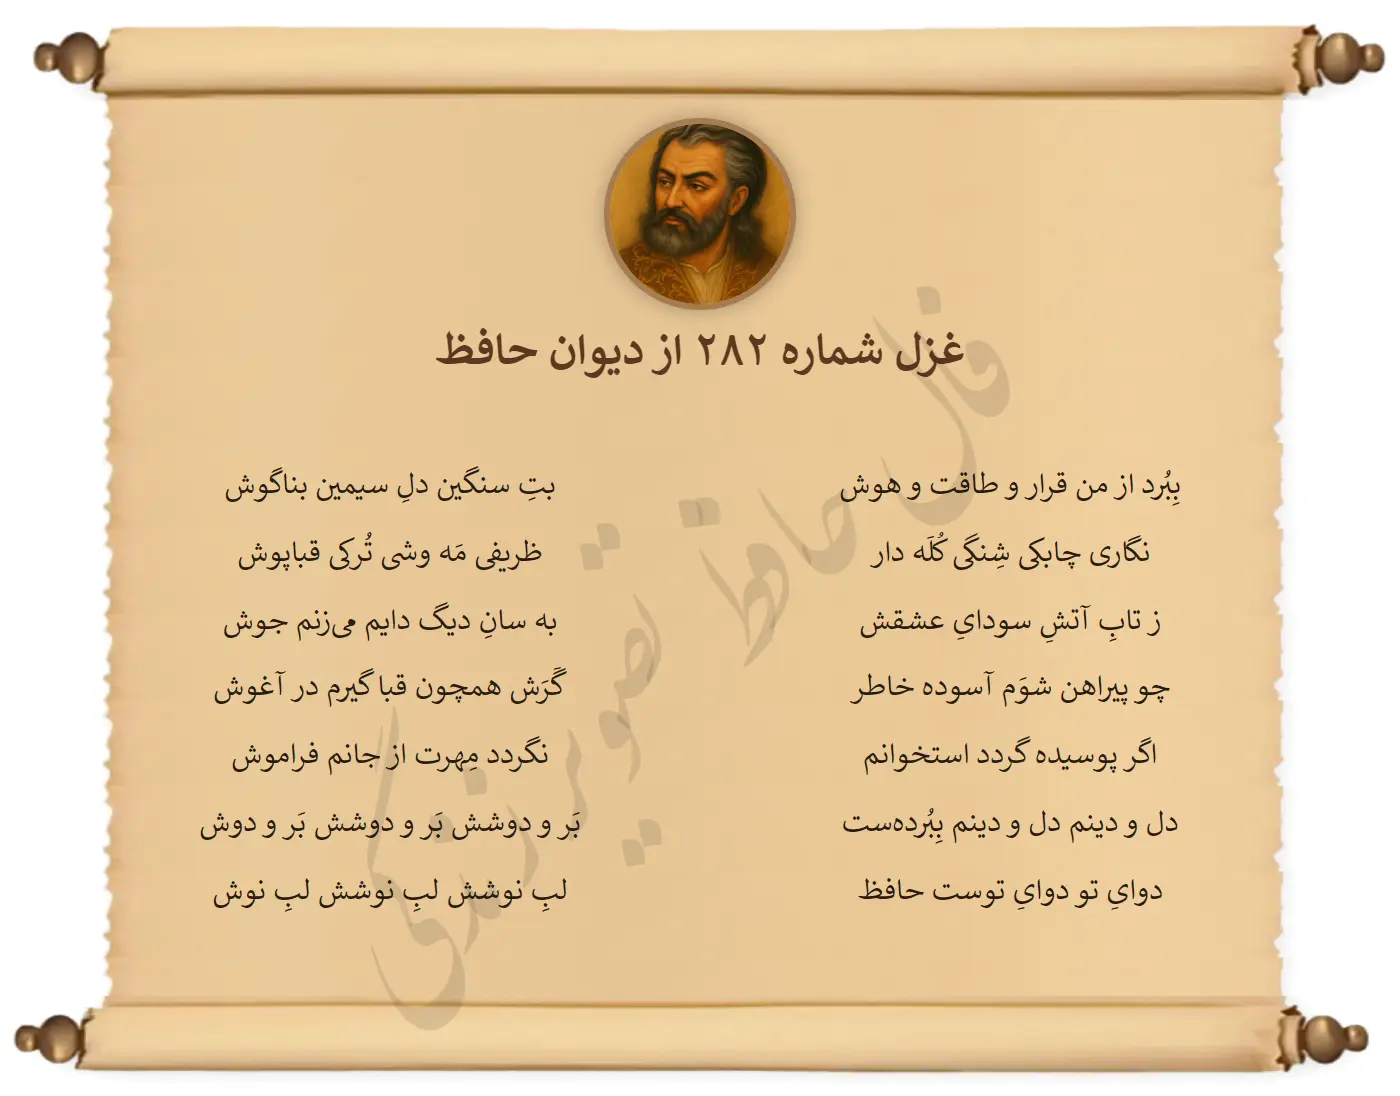 غزل شماره ۲۸۲ از دیوان حافظ
بِبُرد از من قرار و طاقت و هوش
بتِ سنگین دلِ سیمین بناگوش
نگاری چابکی شِنگی کُلَه دار
ظریفی مَه وشی تُرکی قباپوش
ز تابِ آتشِ سودایِ عشقش
به سانِ دیگ دایم می‌زنم جوش
چو پیراهن شوَم آسوده خاطر
گَرَش همچون قبا گیرم در آغوش
اگر پوسیده گردد استخوانم
نگردد مِهرت از جانم فراموش
دل و دینم دل و دینم بِبُرده‌ست
بَر و دوشش بَر و دوشش بَر و دوش
دوایِ تو دوایِ توست حافظ
لبِ نوشش لبِ نوشش لبِ نوش
فال حافظ تصویر زندگی